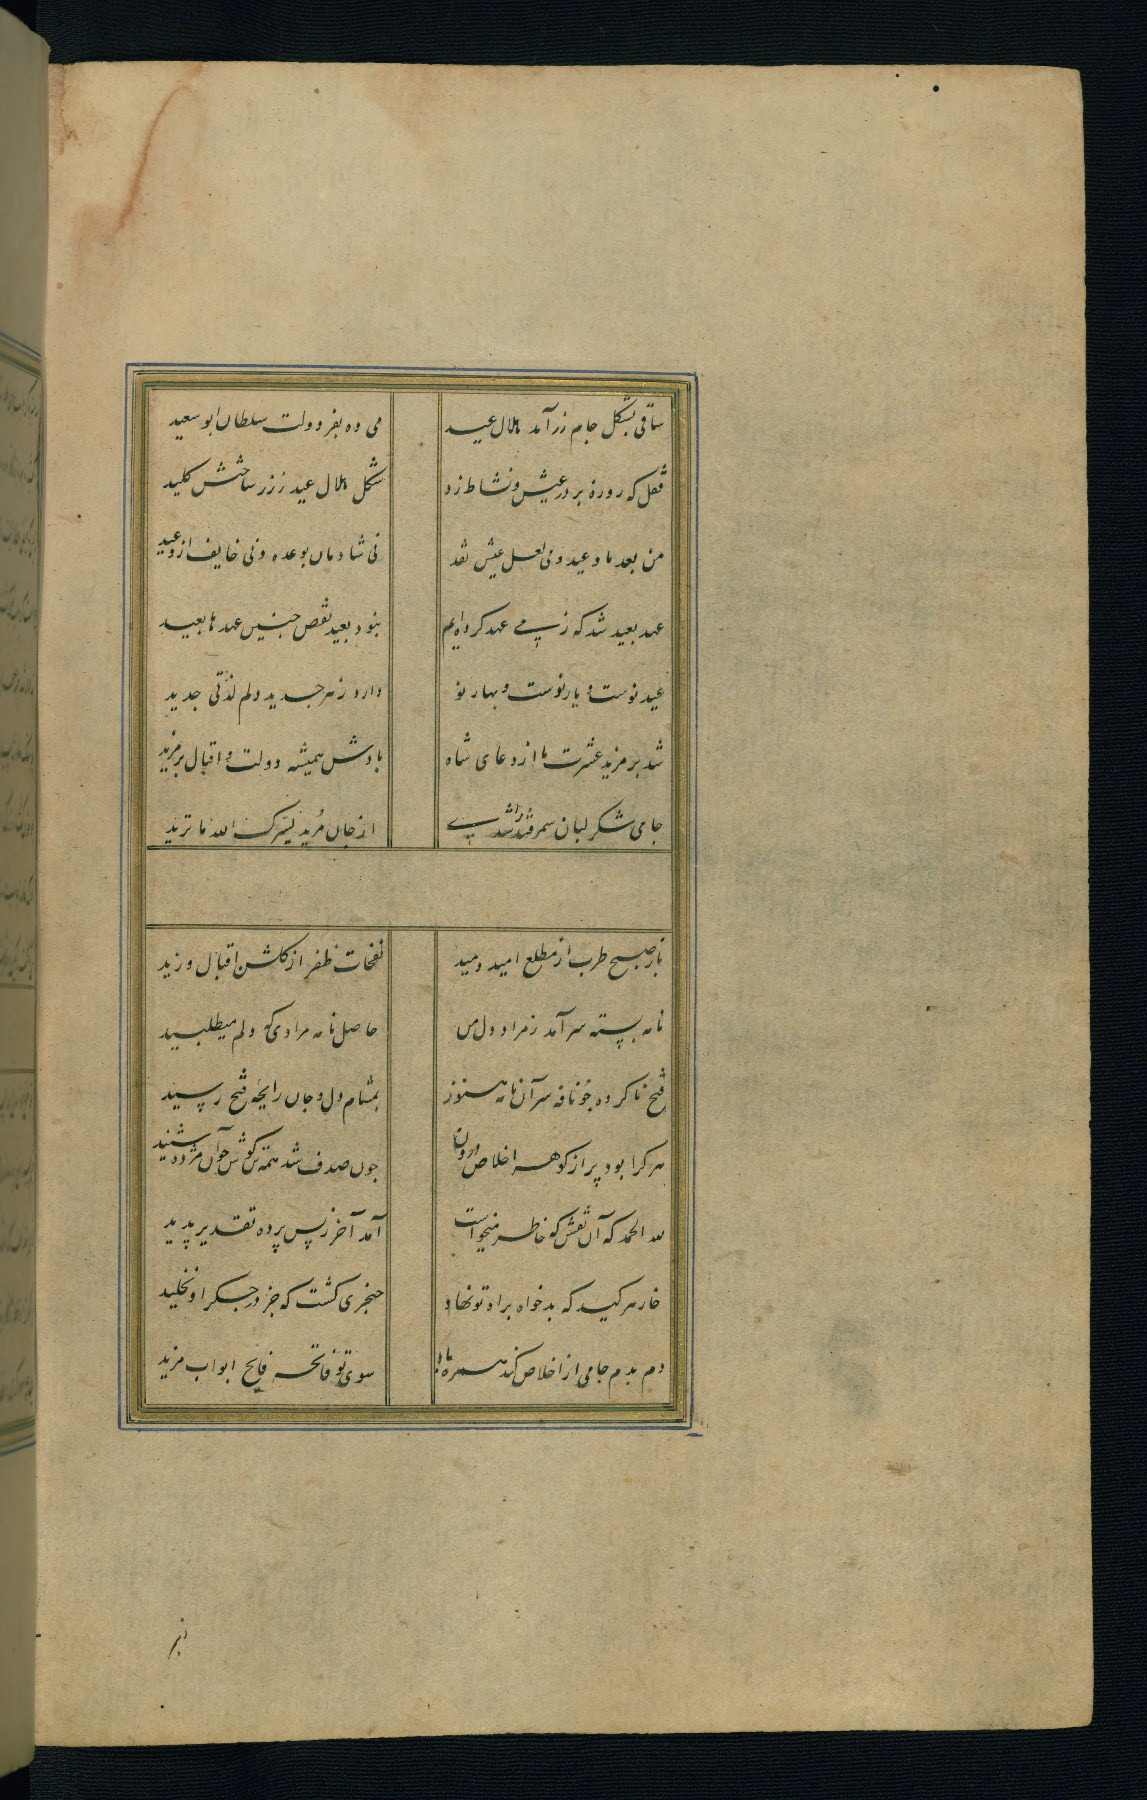 ساقی بشکل جام زر آمد هلال عید
می ده بفر دولت سلطان ابو سعید
قفل که روزه بر در عیش و نشاط زد
شکل هلال عید ز زر ساختش کلید
من بعد ما و عید و می لعل عیش نقد
نی شادمان بوعده و نی خایف از وعید
عهد بعید شد که ز می عهد کرده ایم
نبود بعید نقص چنین عهدها بعید
عید نوست و یار نوست و بهار نو
دارد ز هر جدید دلم لذتی جدید
شد بر مزید عشرت ما از دعای شاه
بادش همیشه دولت و اقبال بر مزید
جامی شکر لبان سمرقند را شدی
از جان مرید یسرک الله ما ترید
باز صبح طرب از مطلع امید دمید
نفحات ظفر از کلشن اقبال وزید
نامه بسته سر آمد ز مراد دل من
حاصل نامه مرادی که دلم میطلبید
فتح ناکرده چو نافه سر آن نامه هنوز
بمشام دل و جان رایحه فتح رسید
هر کرا بود پر از کوهر اخلاص درون
چون صدف شد همه تن کوش چو آن مژده شنید
لله الحمد که آن نقش که خاطر میخواست
آمد آخر ز پس پرده تقدیر پدید
خار هر کید که بدخواه براه تو نهاد
خنجری کشت که جز در جکر او نخلید
دم بدم جامی از اخلاص کند همره باد
سوی تو فاتحه فاتح ابواب مزید